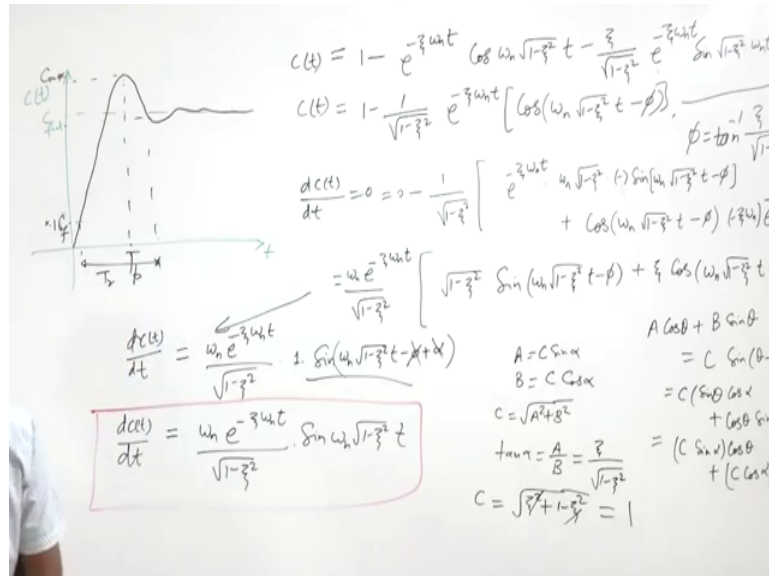 C(t) = 1 - e^{-ξωnt} Cos ωn √(1-ξ²) t - ξ/√(1-ξ²) e^{-ξωnt} Sin √(1-ξ²) ωnt
C(t) = 1 - 1/√(1-ξ²) e^{-ξωnt} [Cos(ωn √(1-ξ²) t - φ)],
φ = tan⁻¹ ξ/√(1-
dc(t)/dt = 0 = 0 - 1/√(1-ξ²) [ e^{-ξωnt} ωn √(1-ξ²) (-) Sin[ωn √(1-ξ²) t - φ]
+ Cos(ωn √(1-ξ²) t - φ) (-ξωn) e
= ωn e^{-ξωnt}/√(1-ξ²) [ √(1-ξ²) Sin (ωn √(1-ξ²) t - φ) + ξ Cos(ωn √(1-ξ²) t
dc(t)/dt = ωn e^{-ξωnt}/√(1-ξ²) . 1. Sin(ωn √(1-ξ²) t - φ + α)
dc(t)/dt = ωn e^{-ξωnt}/√(1-ξ²) . Sin ωn √(1-ξ²) t
C(t)
t
A = C Sin α
B = C Cos α
C = √(A²+B²)
tan α = A/B = ξ/√(1-ξ²)
C = √(ξ² + 1 - ξ²) = 1
A Cos θ + B Sin θ
= C Sin (θ
= C (Sin θ Cos α
+ Cos θ Sin
= (C Sin α) Cos θ
+ (C Cos α